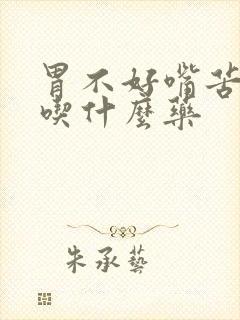 胃不好嘴苦
喫什麼藥
朱承藝